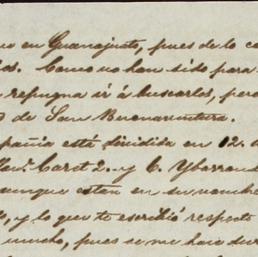 en Guanajuato, pues de lo
Como no han sido para
repugna ir á buscarlos, pero
de San Buenaventura.
está dividida en 12.
Carot 2. y C. Ybarra
aunque estan en su rancho
y lo que te escribió respecto
mucho, pues se me hace